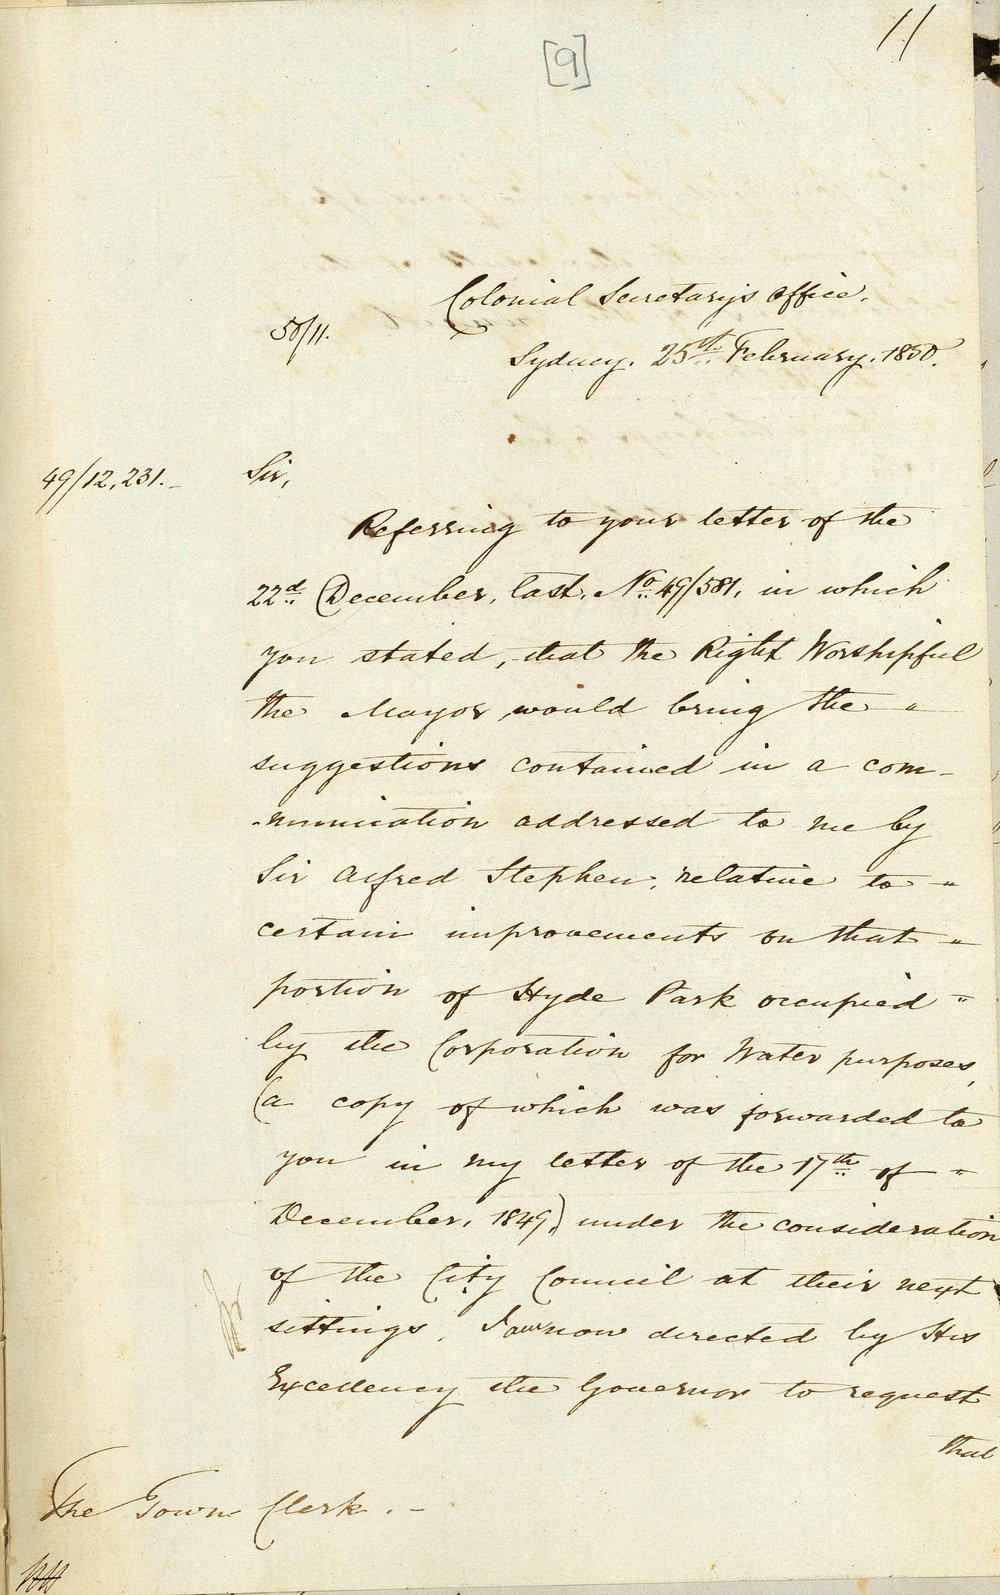 11
[9]
Colonial Secretary's Office,
50/11.
Sydney. 25th February. 1850.
49/12,231.-
Sir,
Referring to your letter of the
22d December, last, No. 49/581, in which
you stated, that the Right Worshipful
the Mayor would bring the "
suggestions contained in a com-
-munication addressed to me by
Sir Alfred Stephen, relative to "
certain improvements on that "
portion of Hyde Park occupied "
by the Corporation for Water purposes,
(a copy of which was forwarded to
you in my letter of the 17th of "
December, 1849,) under the consideration
of the City Council at their next
sittings, I am now directed by His
Excellency the Governor to request
that
The Town Clerk.-